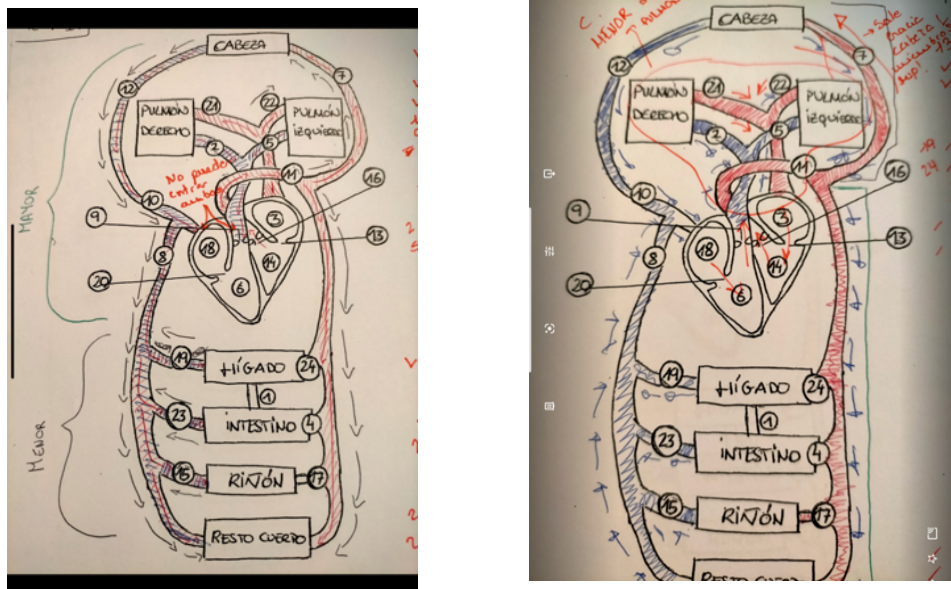 CABEZA
12
7
PULMÓN
DERECHO
21
22
PULMÓN
IZQUIERDO
2
5
No puedo
entrar
11
16
10
9
3
13
18
8
14
20
6
MAYOR
19
HÍGADO
24
1
23
INTESTINO
4
MENOR
15
RIÑÓN
17
RESTO CUERPO
C
MENOR
CABEZA
→ Sale
hacia
cabeza
12
7
PULMÓN
DERECHO
21
22
PULMÓN
IZQUIERDO
2
5
19
24
11
16
10
9
3
13
18
8
14
20
6
19
HÍGADO
24
1
23
INTESTINO
4
15
RIÑÓN
17
RESTO CUERPO